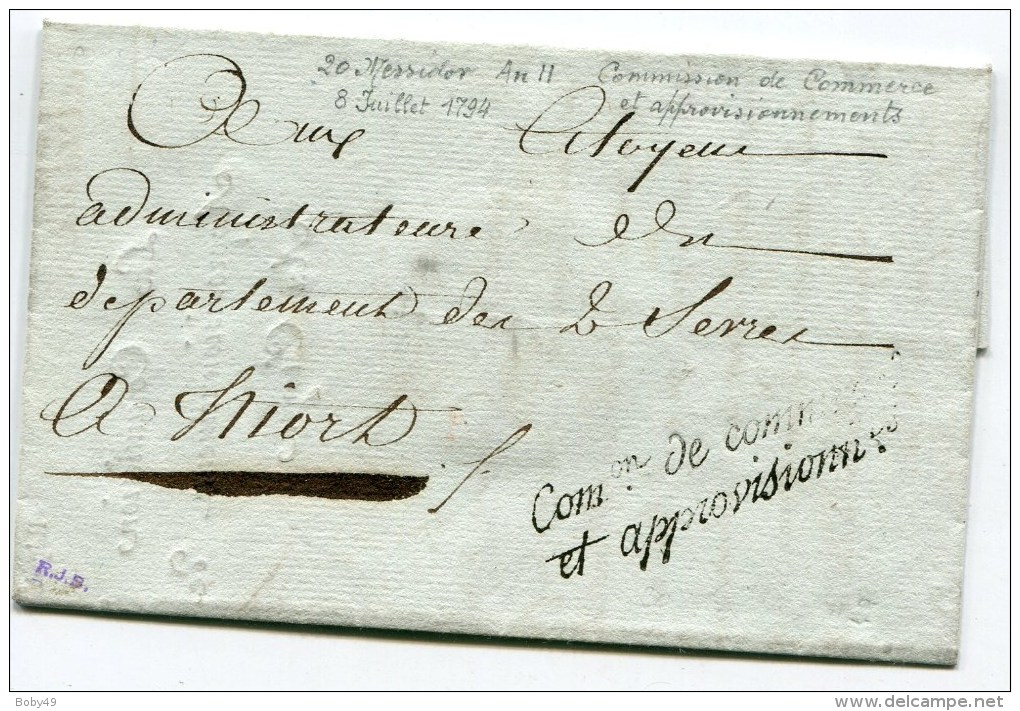 20 Messidor An II Commission de Commerce
8 Juillet 1794 et approvisionnements
Aux Citoyens
administrateurs du
departement des 2 Sevres
A Niort
Com.on de comm
et approvisionn
R.J.B.
Boby49
www.delcampe.net